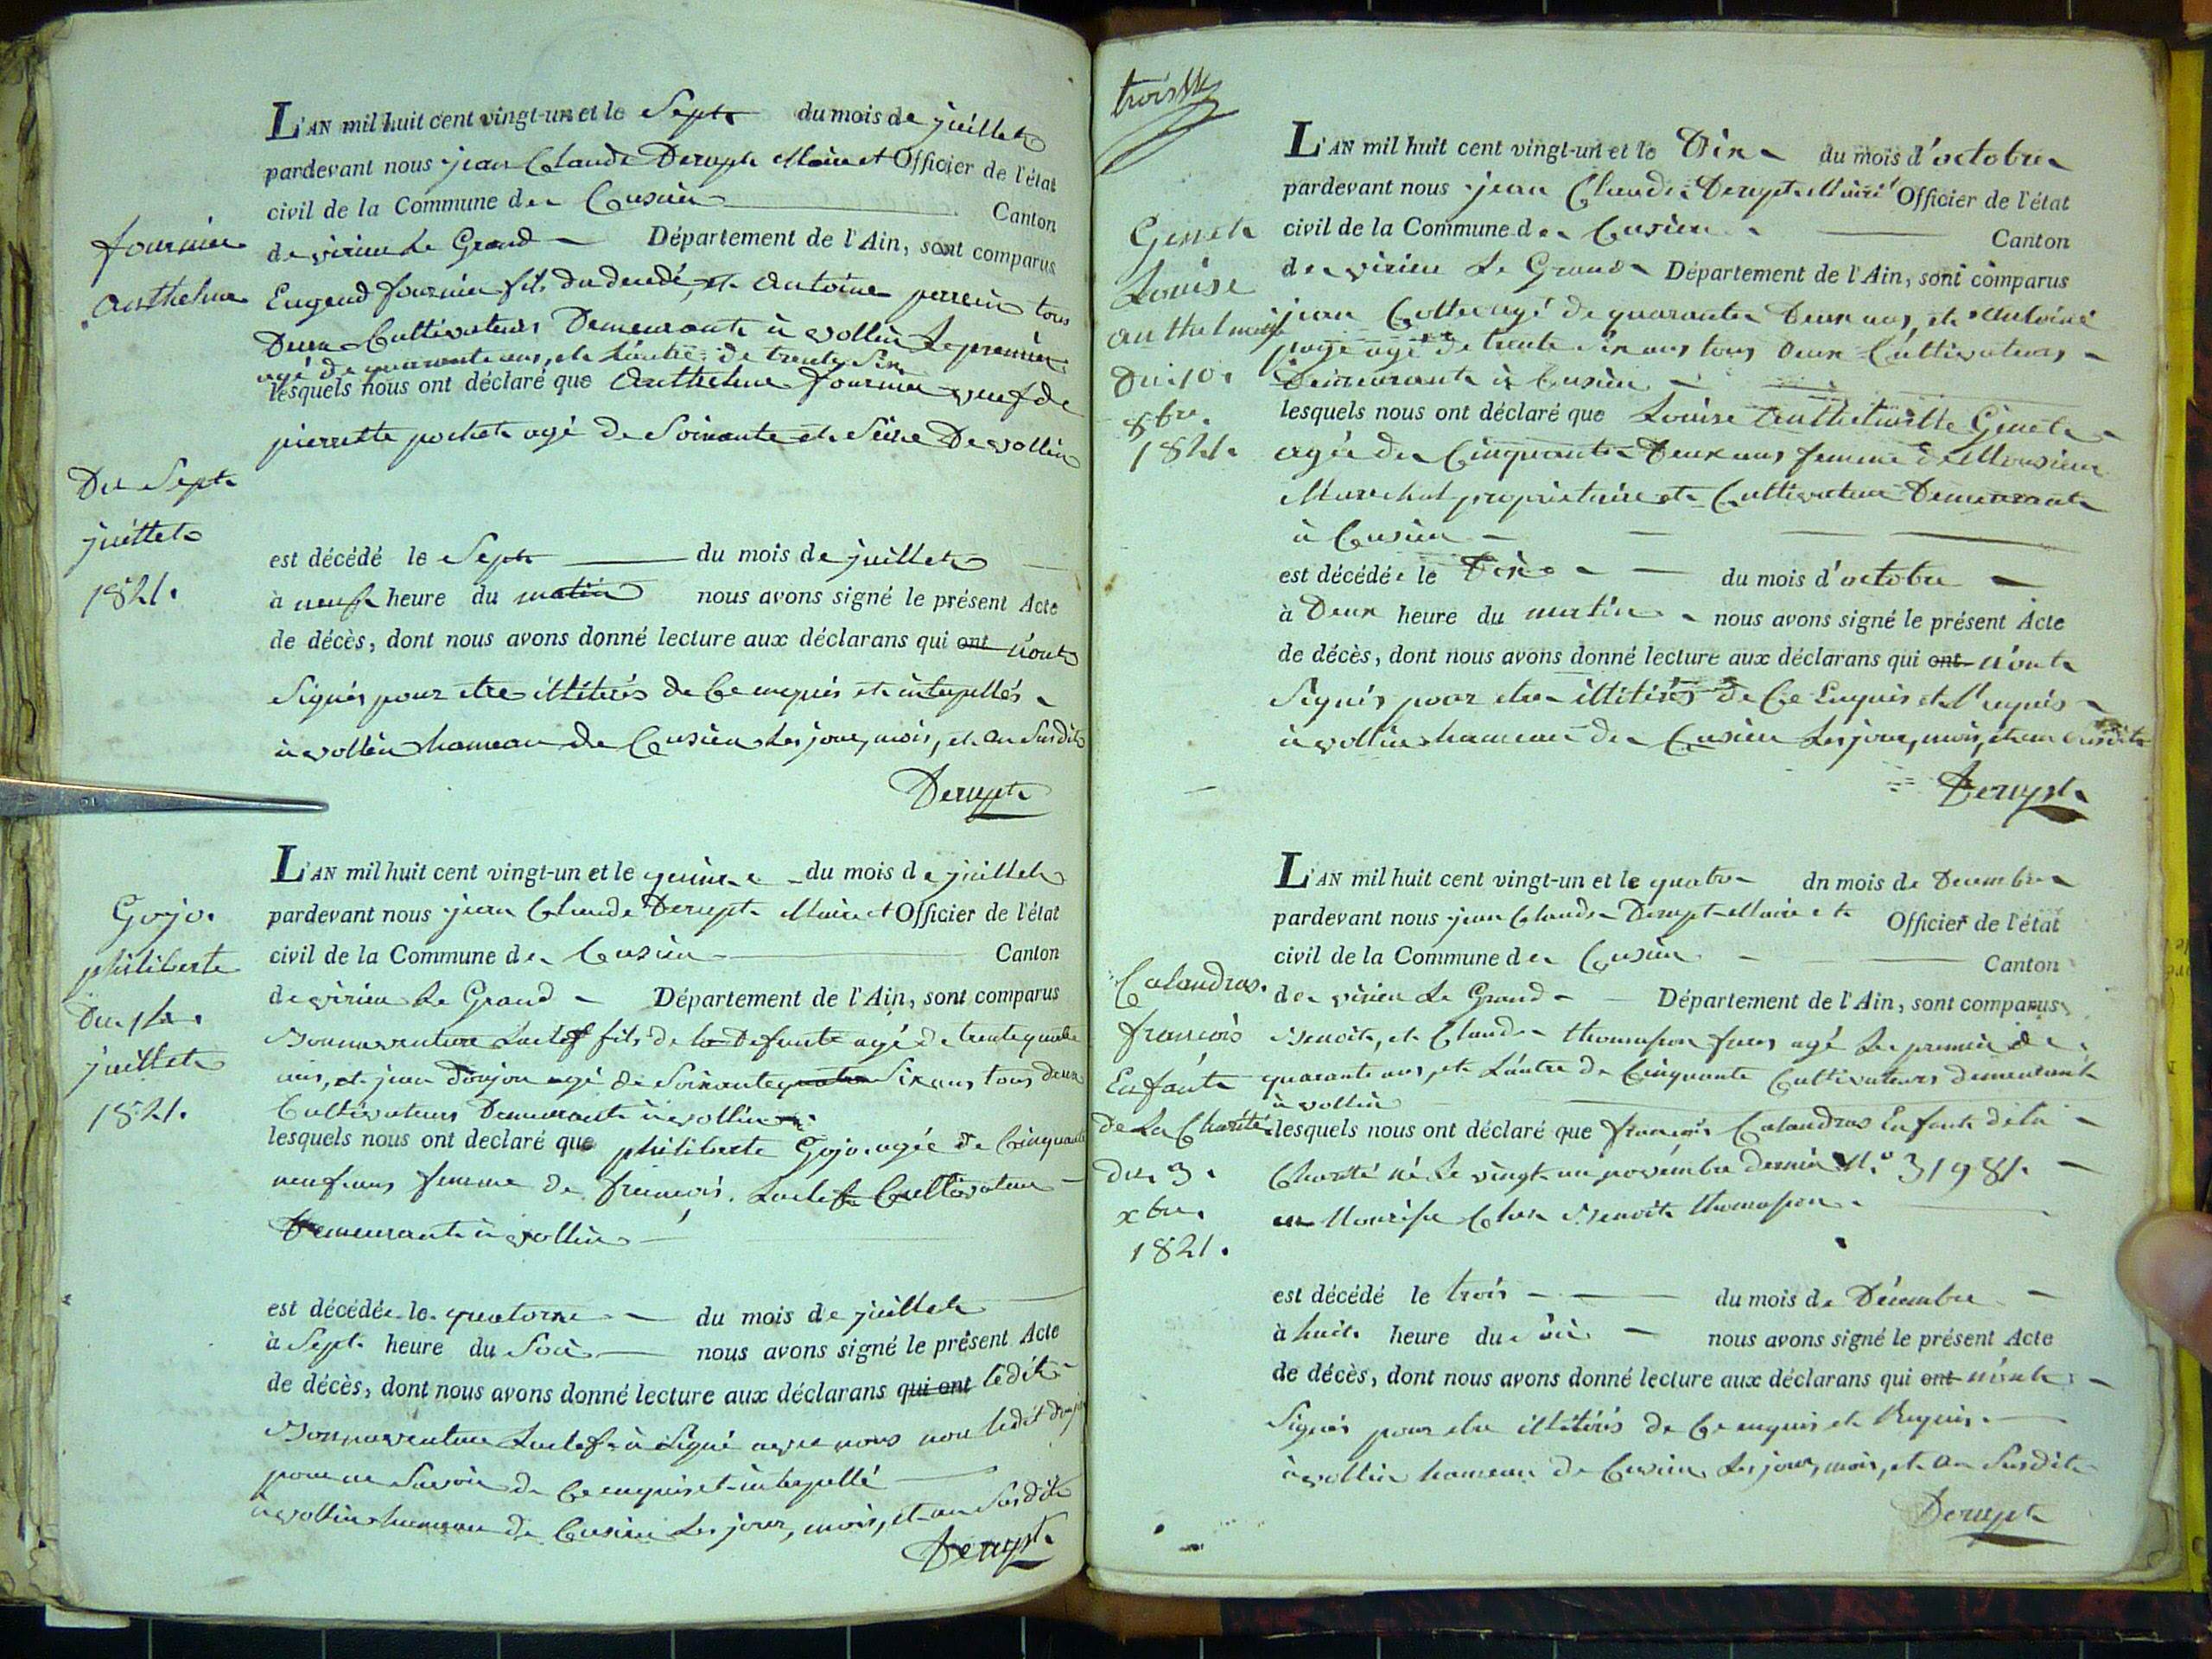 fournier
anthelme
Du Sept
juillet
1821.
L'AN mil huit cent vingt-un et le Sept du mois de juillet
pardevant nous jean Claude Derupt Maire et Officier de l'état
civil de la Commune de Cusieu Canton
de virieu Le Grand Département de l'Ain, sont comparus
Eugend fournier fils du decedé, et Antoine perrin tous
Deux Cultivateurs Demeurant à vollin Le premier
agé de quarante ans, et L'autre de trente Six
lesquels nous ont déclaré que Anthelme fournier veuf de
pierrette pochet agé de Soixante et Seize De vollin
est décédé le Sept du mois de juillet
à neuf heure du matin nous avons signé le présent Acte
de décès, dont nous avons donné lecture aux déclarans qui ont n'ont
Signés pour etre illitérés de Ce enquis et interpellés
à vollin hameau de Cusieu Les jour, mois, et an Susdit
Derupt
Gojo.
philiberte
Du 14.
juillet
1821.
L'AN mil huit cent vingt-un et le quinze du mois de juillet
pardevant nous jean Claude Derupt Maire et Officier de l'état
civil de la Commune de Cusieu Canton
de virieu Le Grand Département de l'Ain, sont comparus
Bonnaventure fils de la Defunte agé de trente quatre
ans, et jean Donjon agé de Soixante quatre Six ans tous deux
Cultivateurs Demeurant à vollin
lesquels nous ont declaré que philiberte Gojo. agée de Cinquante
neuf ans femme de françois Cultivateur
Demeurant à vollin
est décédée le quatorze du mois de juillet
à Sept heure du Soir nous avons signé le présent Acte
de décès, dont nous avons donné lecture aux déclarans qui ont ledit
Bonnaventure à Signé avec nous non ledit Donjon
pour ne Savoir de Ce enquis et interpellé
à vollin hameau de Cusieu Les jour, mois, et an Susdit
Derupt
trois
Genet
Louise
anthelmette
Du 10.
8bre.
1821.
L'AN mil huit cent vingt-un et le Dix du mois d'octobre
pardevant nous jean Claude Derupt Maire Officier de l'état
civil de la Commune de Cusieu Canton
de virieu Le Grand Département de l'Ain, sont comparus
jean Collet agé de quarante Deux ans, et Antoine
page agé de trente Six ans tous Deux Cultivateurs
Demeurant à Cusieu
lesquels nous ont déclaré que Louise Anthelmette Genet
agée de Cinquante Deux ans femme de Monsieur
Marechal propriétaire et Cultivateur Demeurant
à Cusieu
est décédée le Dix du mois d'octobre
à Deux heure du matin nous avons signé le présent Acte
de décès, dont nous avons donné lecture aux déclarans qui ont n'ont
Signés pour etre illitérés de Ce Enquis et Requis
à vollin hameau de Cusieu Les jour, mois, et an Susdit
Derupt
Calandras.
françois
Enfant
de La Charité
du 3.
xbre.
1821.
L'AN mil huit cent vingt-un et le quatre dn mois de Decembre
pardevant nous jean Claude Derupt Maire et Officier de l'état
civil de la Commune de Cusieu Canton
de virieu Le Grand Département de l'Ain, sont comparus
Benoit, et Claude thomasson freres agé Le premier de
quarante ans, et L'autre de Cinquante Cultivateurs demeurant
à vollin
lesquels nous ont déclaré que françois Calandras Enfant de la
Charité né Le vingt un novembre dernier N.° 31981.
en Nourisse Chez Benoit thomasson.
est décédé le trois du mois de Décembre
à huit heure du Soir nous avons signé le présent Acte
de décès, dont nous avons donné lecture aux déclarans qui ont n'ont
Signés pour etre illitérés de Ce enquis et Requis.
à vollin hameau de Cusieu Les jour, mois, et an Susdit
Derupt